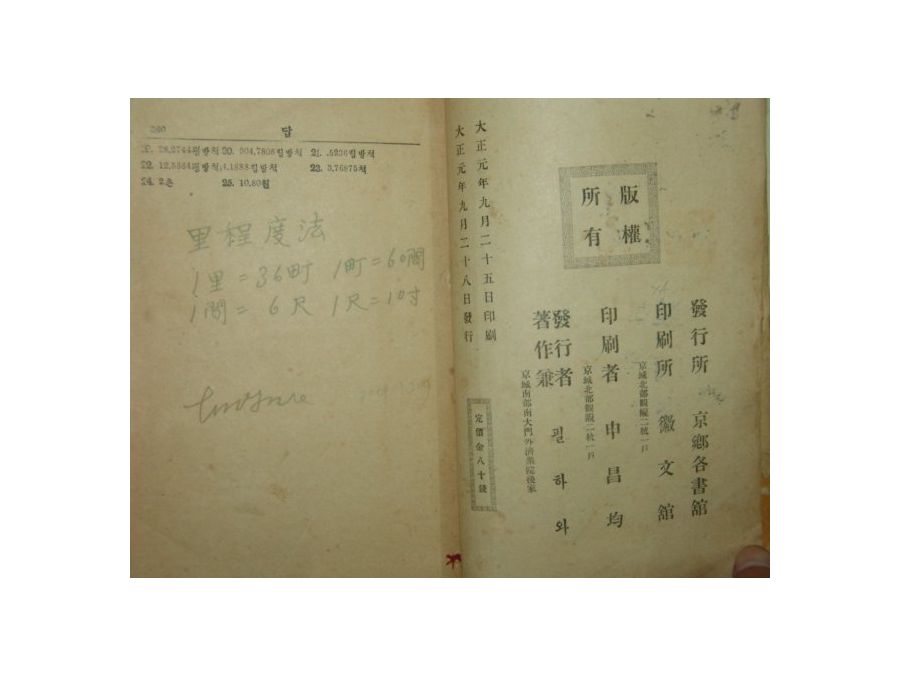 260 답
19. 28.2744평방척 20. 904.7808립방척 21. .5236립방척
22. 12.5664평방척,4.1888립방척 23. 3.76875척
24. 2촌 25. 10.80원
里程度法
1里=36町 1町=60間
1間= 6尺 1尺=10寸
大正元年九月二十五日印刷
大正元年九月二十八日發行
版權所有
定價金八十錢
京城南部南大門外濟衆院後家
著作兼發行者 필하와
京城北部觀峴二統一戶
印刷者 申昌均
京城北部觀峴二統一戶
印刷所 徽文舘
發行所 京鄕各書舘